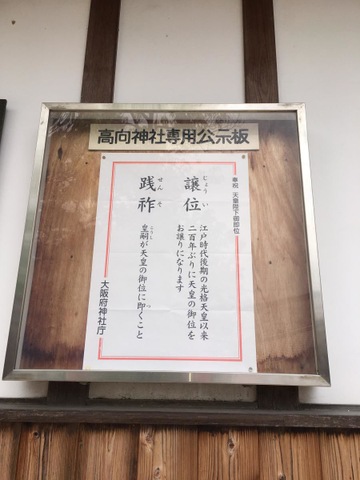 高向神社専用公示板
奉祝 天皇陛下御即位
譲位
じょうい
江戸時代後期の光格天皇以来
二百年ぶりに天皇の御位を
お譲りになります
践祚
せんそ
皇嗣が天皇の御位に即くこと
こうし
つ
大阪府神社庁